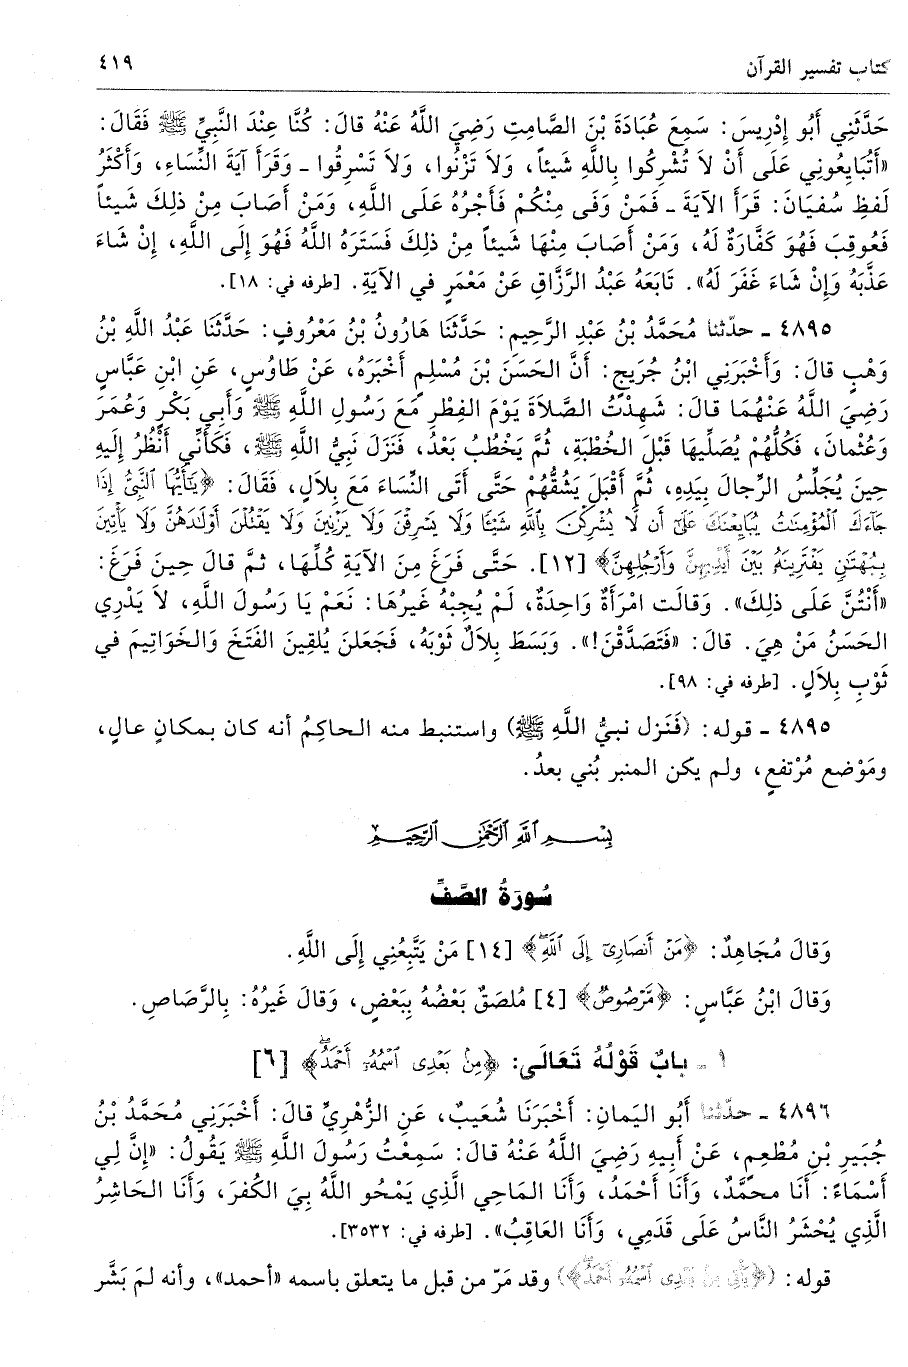 كتاب تفسير القرآن ٤١٩
حَدَّثَنِي أَبُو إِدْرِيسَ: سَمِعَ عُبَادَةَ بْنَ الصَّامِتِ رَضِيَ اللَّهُ عَنْهُ قالَ: كُنَّا عِنْدَ النَّبِيِّ ﷺ فَقَالَ:
«أَتُبَايِعُونِي عَلَى أَنْ لاَ تُشْرِكُوا بِاللَّهِ شَيئاً، وَلاَ تَزْنُوا، وَلاَ تَسْرِقُوا ـ وَقَرَأَ آيَةَ النِّسَاءِ، وَأَكْثَرُ
لَفظِ سُفيَانَ: قَرَأَ الآيَةَ ـ فَمَنْ وَفَى مِنْكُمْ فَأَجْرُهُ عَلَى اللَّهِ، وَمَنْ أَصَابَ مِنْ ذلِكَ شَيئاً
فَعُوقِبَ فَهُوَ كَفَّارَةٌ لَهُ، وَمَنْ أَصَابَ مِنْهَا شَيئاً مِنْ ذلِكَ فَسَتَرَهُ اللَّهُ فَهُوَ إِلَى اللَّهِ، إِنْ شَاءَ
عَذَّبَهُ وَإِنْ شَاءَ غَفَرَ لَهُ». تَابَعَهُ عَبْدُ الرَّزَّاقِ عَنْ مَعْمَرٍ في الآيَةِ. [طرفه في: ١٨].
٤٨٩٥ ـ حدّثنا مُحَمَّدُ بْنُ عَبْدِ الرَّحِيمِ: حَدَّثَنَا هَارُونُ بْنُ مَعْرُوفٍ: حَدَّثَنَا عَبْدُ اللَّهِ بْنُ
وَهْبٍ قالَ: وَأَخْبَرَنِي ابْنُ جُرَيجٍ: أَنَّ الحَسَنَ بْنَ مُسْلِمٍ أَخْبَرَهُ، عَنْ طَاوُسٍ، عَنِ ابْنِ عَبَّاسٍ
رَضِيَ اللَّهُ عَنْهُمَا قالَ: شَهِدْتُ الصَّلاَةَ يَوْمَ الفِطْرِ مَعَ رَسُولِ اللَّهِ ﷺ وَأَبِي بَكْرٍ وَعُمَرَ
وَعُثْمانَ، فَكُلُّهُمْ يُصَلِّيهَا قَبْلَ الخُطْبَةِ، ثُمَّ يَخْطُبُ بَعْدُ، فَنَزَلَ نَبِيُّ اللَّهِ ﷺ، فَكَأَنِّي أَنْظُرُ إِلَيهِ
حِينَ يُجَلِّسُ الرِّجالَ بِيَدِهِ، ثُمَّ أَقْبَلَ يَشُقُّهُمْ حَتَّى أَتَى النِّسَاءَ مَعَ بِلاَلٍ، فَقَالَ: ﴿يَٰٓأَيُّهَا ٱلنَّبِىُّ إِذَا
جَآءَكَ ٱلْمُؤْمِنَٰتُ يُبَايِعْنَكَ عَلَىٰٓ أَن لَّا يُشْرِكْنَ بِٱللَّهِ شَيْـًٔا وَلَا يَسْرِقْنَ وَلَا يَزْنِينَ وَلَا يَقْتُلْنَ أَوْلَٰدَهُنَّ وَلَا يَأْتِينَ
بِبُهْتَٰنٍ يَفْتَرِينَهُۥ بَيْنَ أَيْدِيهِنَّ وَأَرْجُلِهِنَّ﴾ [١٢]. حَتَّى فَرَغَ مِنَ الآيَةِ كُلِّهَا، ثمَّ قالَ حِينَ فَرَغَ:
«أَنْتُنَّ عَلَى ذلِكَ». وَقالَتِ امْرَأَةٌ وَاحِدَةٌ، لَمْ يُجِبْهُ غَيرُهَا: نَعَمْ يَا رَسُولَ اللَّهِ، لاَ يَدْرِي
الحَسَنُ مَنْ هِيَ. قالَ: «فَتَصَدَّقْنَ!». وَبَسَطَ بِلاَلٌ ثَوْبَهُ، فَجَعَلنَ يُلقِينَ الفَتَخَ وَالخَوَاتِيمَ في
ثَوْبِ بِلاَلٍ. [طرفه في: ٩٨].
٤٨٩٥ ـ قوله: (فَنَزل نبيُّ اللَّهِ ﷺ) واستنبط منه الحاكِمُ أنه كان بمكانٍ عالٍ،
ومَوْضع مُرْتفعٍ، ولم يكن المنبر بُني بعدُ.
بِسْمِ ٱللَّهِ ٱلرَّحْمَٰنِ ٱلرَّحِيمِ
سُورَةُ الصَّفِّ
وَقالَ مُجَاهِدٌ: ﴿مَنْ أَنصَارِىٓ إِلَى ٱللَّهِ﴾ [١٤] مَنْ يَتَّبِعُنِي إِلَى اللَّهِ.
وَقالَ ابْنُ عَبَّاسٍ: ﴿مَّرْصُوصٌ﴾ [٤] مُلصَقٌ بَعْضُهُ بِبَعْضٍ، وَقالَ غَيرُهُ: بِالرَّصَاصِ.
١ ـ بابُ قَوْلُهُ تَعَالَى: ﴿مِنۢ بَعْدِى ٱسْمُهُۥٓ أَحْمَدُ﴾ [٦]
٤٨٩٦ ـ حدّثنا أَبُو اليَمانِ: أَخْبَرَنَا شُعَيبٌ، عَنِ الزُّهْرِيِّ قالَ: أَخْبَرَنِي مُحَمَّدُ بْنُ
جُبَيرِ بْنِ مُطْعِمٍ، عَنْ أَبِيهِ رَضِيَ اللَّهُ عَنْهُ قالَ: سَمِعْتُ رَسُولَ اللَّهِ ﷺ يَقُولُ: «إِنَّ لِي
أَسْمَاءً: أَنَا محَمَّدٌ، وَأَنَا أَحْمَدُ، وَأَنَا المَاحِي الَّذِي يَمْحُو اللَّهُ بِيَ الكُفرَ، وَأَنَا الحَاشِرُ
الَّذِي يُحْشَرُ النَّاسُ عَلَى قَدَمِي، وَأَنَا العَاقِبُ». [طرفه في: ٣٥٣٢].
قوله: (﴿يَأْتِى مِنۢ بَعْدِى ٱسْمُهُۥٓ أَحْمَدُ﴾) وقد مَرّ من قبل ما يتعلق باسمه «أحمد»، وأنه لمَ بَشَّر